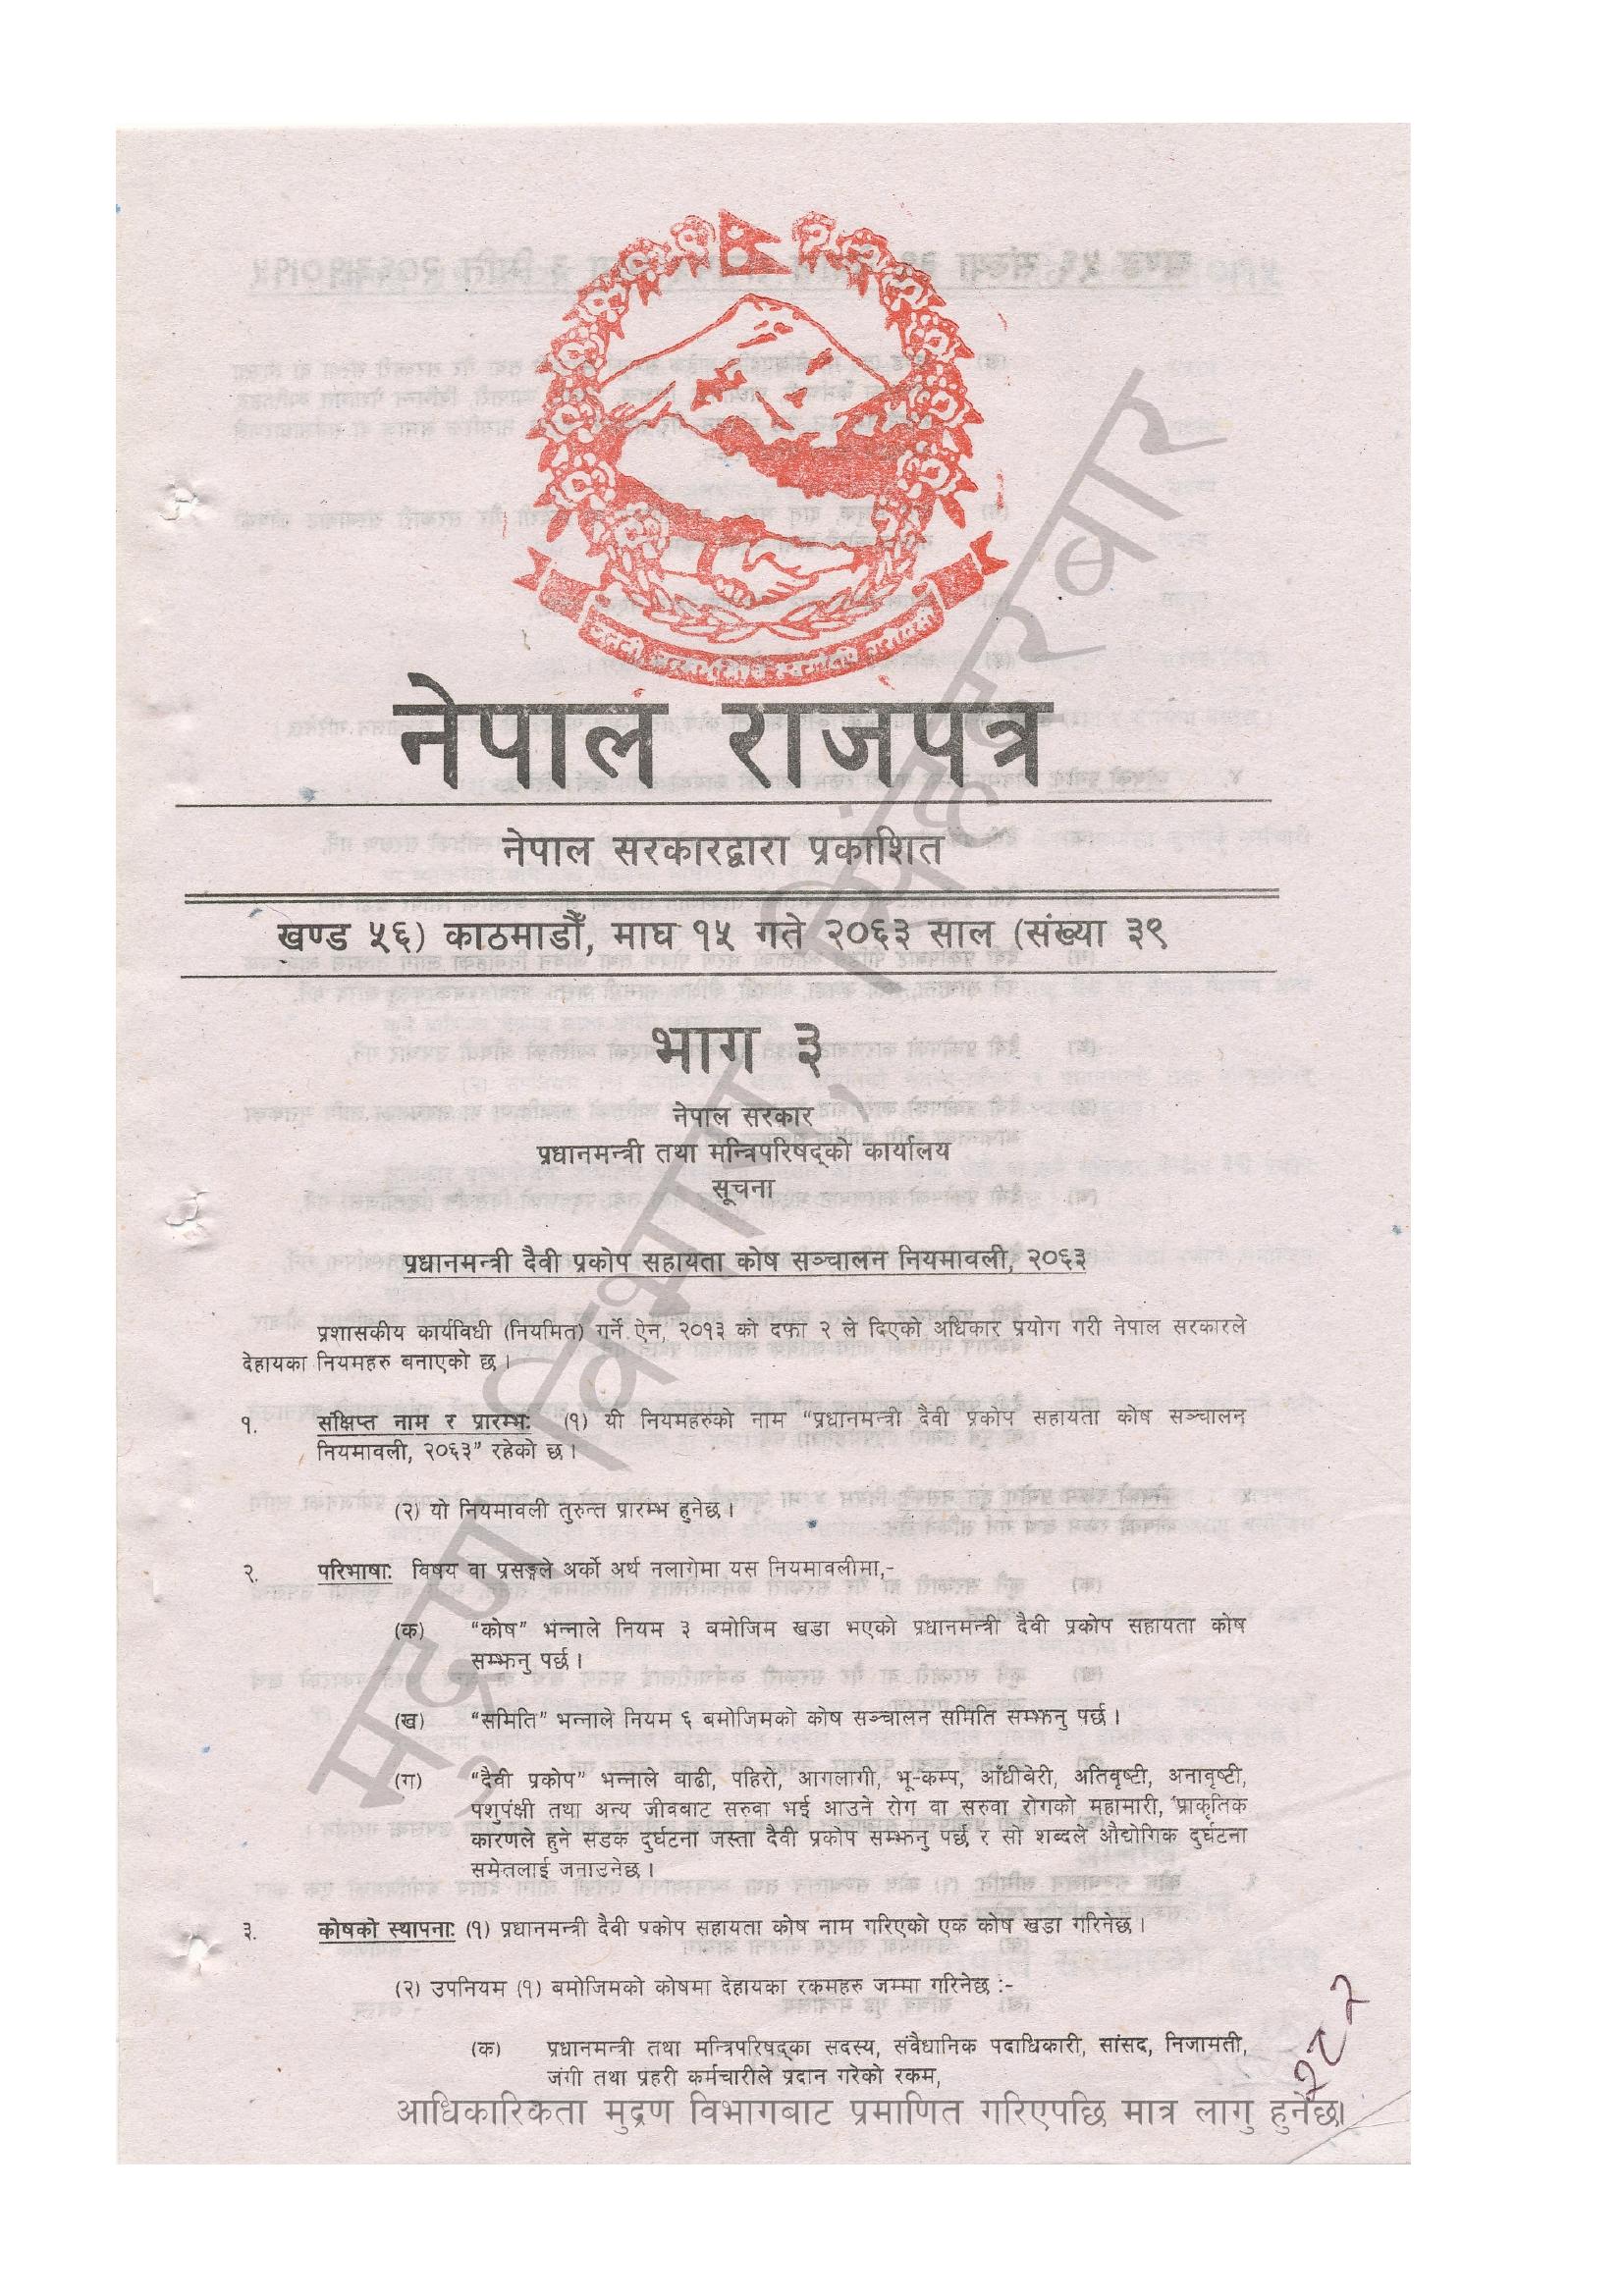 जननी जन्मभूमिश्च स्वर्गादपि गरीयसी
नेपाल राजपत्र
नेपाल सरकारद्वारा प्रकाशित
खण्ड ५६) काठमाडौँ, माघ १५ गते २०६३ साल (संख्या ३९
भाग ३
नेपाल सरकार
प्रधानमन्त्री तथा मन्त्रिपरिषद्को कार्यालय
सूचना
प्रधानमन्त्री दैवी प्रकोप सहायता कोष सञ्चालन नियमावली, २०६३
प्रशासकीय कार्यविधी (नियमित) गर्ने ऐन, २०१३ को दफा २ ले दिएको अधिकार प्रयोग गरी नेपाल सरकारले
देहायका नियमहरु बनाएको छ ।
१. संक्षिप्त नाम र प्रारम्भः (१) यी नियमहरुको नाम “प्रधानमन्त्री दैवी प्रकोप सहायता कोष सञ्चालन
नियमावली, २०६३” रहेको छ ।
(२) यो नियमावली तुरुन्त प्रारम्भ हुनेछ ।
२. परिभाषाः विषय वा प्रसङ्गले अर्को अर्थ नलागेमा यस नियमावलीमा,-
(क) “कोष” भन्नाले नियम ३ बमोजिम खडा भएको प्रधानमन्त्री दैवी प्रकोप सहायता कोष
सम्झनु पर्छ ।
(ख) “समिति” भन्नाले नियम ६ बमोजिमको कोष सञ्चालन समिति सम्झनु पर्छ ।
(ग) “दैवी प्रकोप” भन्नाले बाढी, पहिरो, आगलागी, भू-कम्प, आँधीबेरी, अतिवृष्टी, अनावृष्टी,
पशुपंक्षी तथा अन्य जीवबाट सरुवा भई आउने रोग वा सरुवा रोगको महामारी, प्राकृतिक
कारणले हुने सडक दुर्घटना जस्ता दैवी प्रकोप सम्झनु पर्छ र सो शब्दले औद्योगिक दुर्घटना
समेतलाई जनाउनेछ ।
३. कोषको स्थापनाः (१) प्रधानमन्त्री दैवी प्रकोप सहायता कोष नाम गरिएको एक कोष खडा गरिनेछ ।
(२) उपनियम (१) बमोजिमको कोषमा देहायका रकमहरु जम्मा गरिनेछ :-
(क) प्रधानमन्त्री तथा मन्त्रिपरिषद्का सदस्य, संवैधानिक पदाधिकारी, सांसद, निजामती,
जंगी तथा प्रहरी कर्मचारीले प्रदान गरेको रकम,
आधिकारिकता मुद्रण विभागबाट प्रमाणित गरिएपछि मात्र लागु हुनेछ।
मुद्रण विभाग, सिंहदरवार